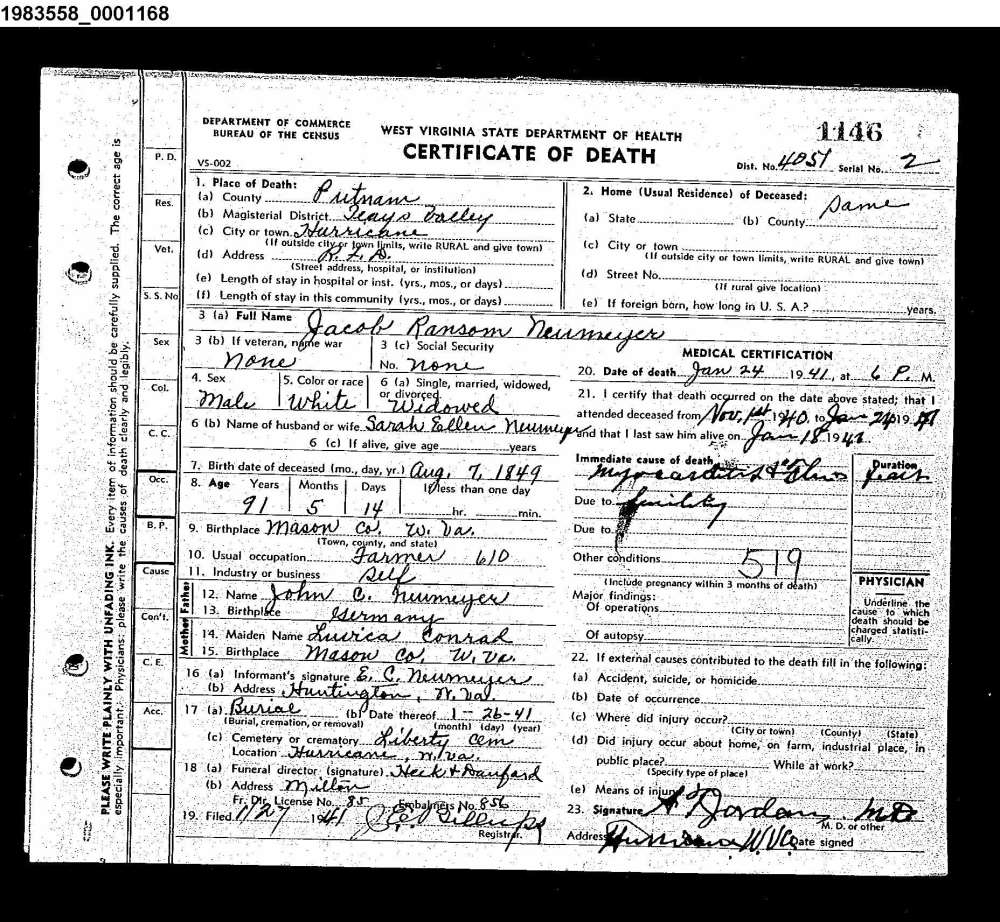 1983558_0001168
DEPARTMENT OF COMMERCE
BUREAU OF THE CENSUS
WEST VIRGINIA STATE DEPARTMENT OF HEALTH
CERTIFICATE OF DEATH
1146
VS-002
Dist. No. 4051 Serial No. 2
PLEASE WRITE PLAINLY WITH UNFADING INK. Every item of information should be carefully supplied. The correct age is
especially important. Physicians: please write the causes of death clearly and legibly.
P. D.
Res.
Vet.
S. S. No
Sex
Col.
C. C.
Occ.
B. P.
Cause
Con't.
C. E.
Acc.
1. Place of Death:
(a) County Putnam
(b) Magisterial District Teays Valley
(c) City or town Hurricane
(If outside city or town limits, write RURAL and give town)
(d) Address R. F. D.
(Street address, hospital, or institution)
(e) Length of stay in hospital or inst. (yrs., mos., or days)
(f) Length of stay in this community (yrs., mos., or days)
2. Home (Usual Residence) of Deceased:
Same
(a) State (b) County
(c) City or town
(If outside city or town limits, write RURAL and give town)
(d) Street No.
(If rural give location)
(e) If foreign born, how long in U. S. A.? years.
3 (a) Full Name Jacob Ransom Neumeyer
3 (b) If veteran, name war None
3 (c) Social Security No. None
4. Sex Male
5. Color or race White
6 (a) Single, married, widowed, or divorced Widowed
6 (b) Name of husband or wife Sarah Ellen Neumeyer
6 (c) If alive, give age years
7. Birth date of deceased (mo., day, yr.) Aug, 7, 1849
8. Age Years Months Days If less than one day
91 5 14 hr. min.
9. Birthplace Mason Co. W. Va.
(Town, county, and state)
10. Usual occupation Farmer 610
11. Industry or business Self
Father
12. Name John C. Neumeyer
13. Birthplace Germany
Mother
14. Maiden Name Conrad
15. Birthplace Mason Co. W. Va.
16 (a) Informant's signature E. C. Neumeyer
(b) Address Huntington, W. Va.
17 (a) Burial (b) Date thereof 1-26-41
(Burial, cremation, or removal) (month) (day) (year)
(c) Cemetery or crematory Liberty Cem
Location Hurricane, W. Va.
18 (a) Funeral director (signature) Heck &
(b) Address Milton
Fr. Dir. License No. 85 Embalmers No. 856
19. Filed 1/27 1941
Registrar
MEDICAL CERTIFICATION
20. Date of death Jan 24 1941, at 6 P. M.
21. I certify that death occurred on the date above stated; that I
attended deceased from Nov. 1st 1940, to Jan 24 1941
and that I last saw him alive on Jan 18 1941.
Immediate cause of death
Duration
Due to
Due to
Other conditions 519
(Include pregnancy within 3 months of death)
Major findings:
Of operations
Of autopsy
PHYSICIAN
Underline the
cause to which
death should be
charged statisti-
cally.
22. If external causes contributed to the death fill in the following:
(a) Accident, suicide, or homicide
(b) Date of occurrence
(c) Where did injury occur?
(City or town) (County) (State)
(d) Did injury occur about home, on farm, industrial place, in
public place? While at work?
(Specify type of place)
(e) Means of injury
23. Signature Jordan MD
M. D. or other
Address Hurricane W Va Date signed